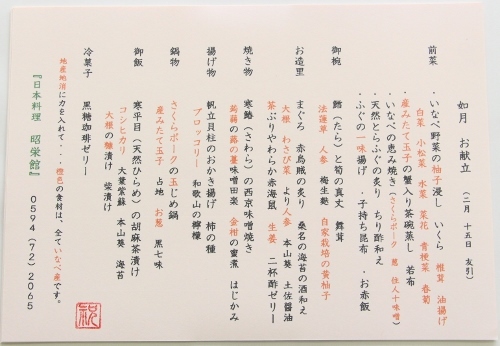 如月　お献立　（二月　十五日　友引）
前菜　・いなべ野菜の柚子浸し　いくら　椎茸　油揚げ
白菜　小松菜　水菜　菜花　青梗菜　春菊
・産みたて玉子の蟹入り茶碗蒸し　若布
・いなべの恵み焼き（さくらポーク　葱　佳人十味噌）
・天然とらふぐの炙り　ちり酢和え
・ふぐの一味揚げ　・子持ち昆布　・お赤飯
御椀　鱈（たら）と筍の真丈　舞茸
法蓮草　人参　梅生麩　自家栽培の黄柚子
お造里　まぐろ　赤烏賊の炙り　桑名の海苔の酒和え
大根　わさび菜　より人参　本山葵　土佐醤油
茶ぶりやわらか赤海鼠　生姜　二杯酢ゼリー
焼き物　寒鰆（さわら）の西京味噌焼き
蒟蒻の蕗の薹味噌田楽　金柑の蜜煮　はじかみ
揚げ物　帆立貝柱のおかき揚げ　柿の種
ブロッコリー　和歌山の檸檬
鍋物　さくらポークの玉じめ鍋
産みたて玉子　占地　お葱　黒七味
御飯　寒平目（天然ひらめ）の胡麻茶漬け
コシヒカリ　大葉紫蘇　本山葵　海苔
大根の糠漬け　柴漬け
冷菓子　黒糖珈琲ゼリー
地産地消に力を入れて・・・橙色の食材は、全ていなべ産です。
『日本料理　昭栄館』　0594（72）2065